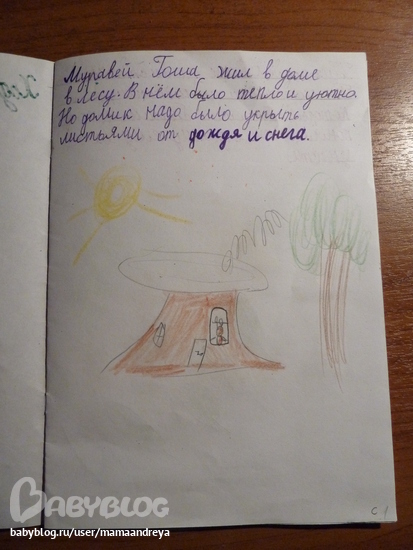 Муравей Гоша жил в доме
в лесу. В нём было тепло и уютно.
Но домик надо было укрыть
листьями от дождя и снега.
с 1
BABYBLOG
babyblog.ru/user/mamaandreya